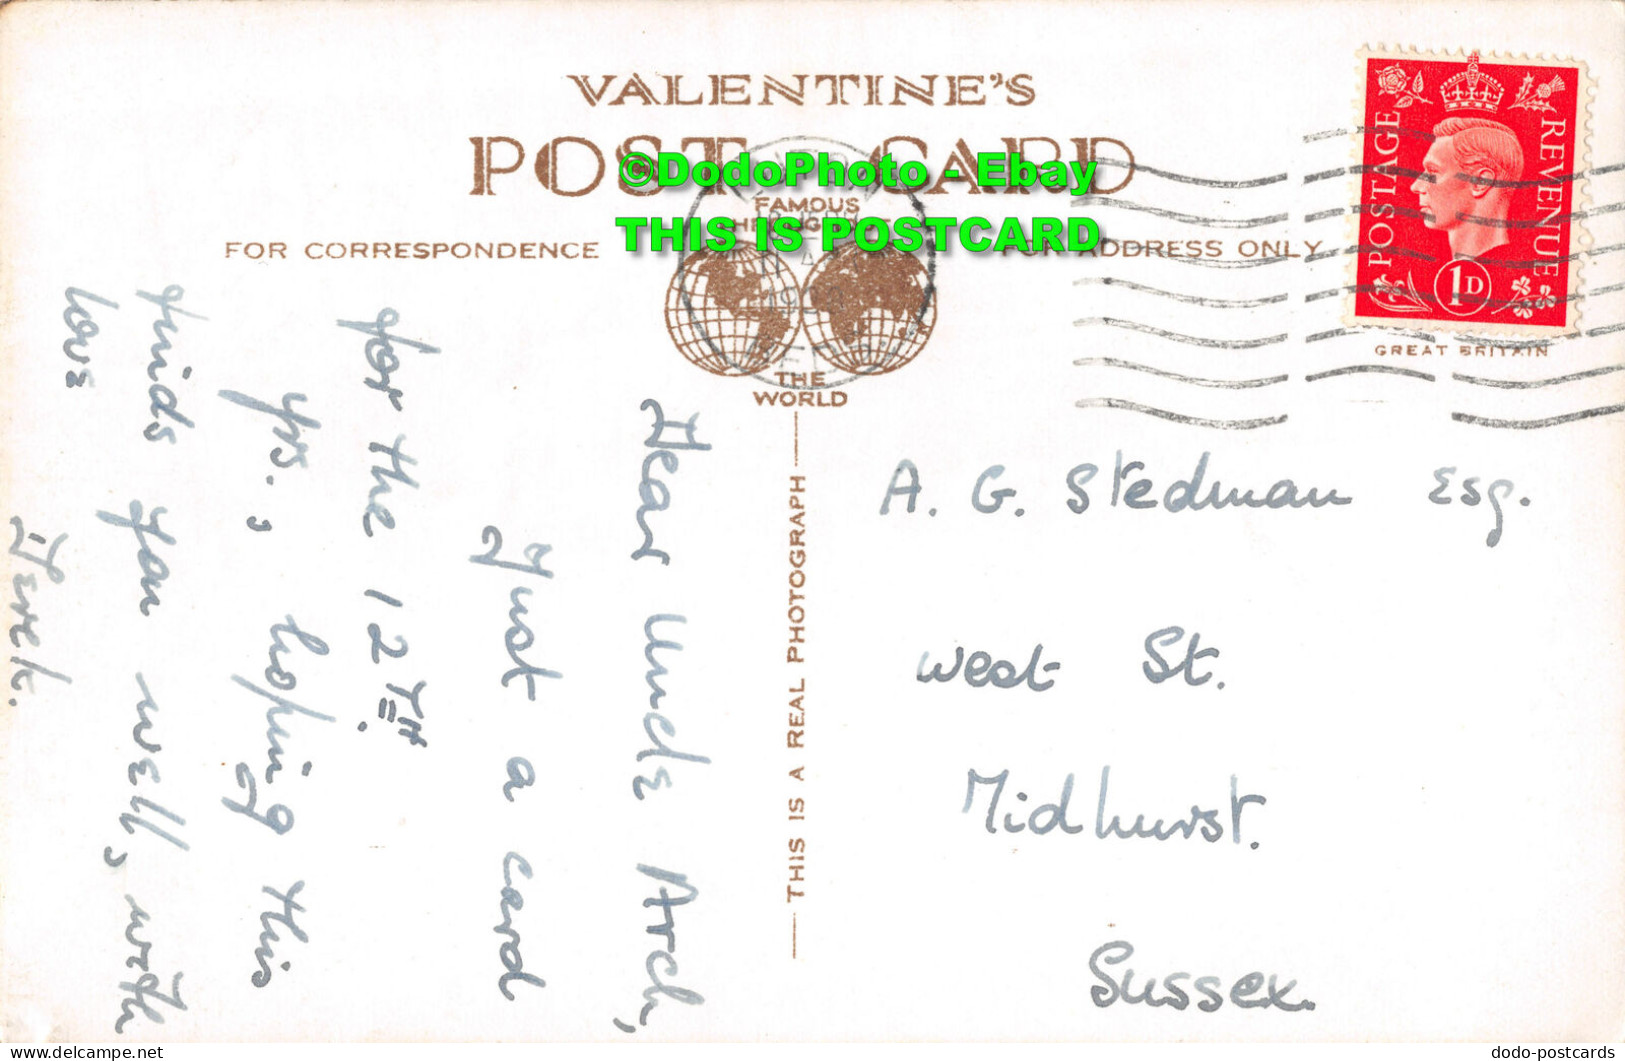 VALENTINE'S
POST CARD
©DodoPhoto - Ebay
THIS IS POSTCARD
FAMOUS
THROUGHOUT
THE
WORLD
FOR CORRESPONDENCE
FOR ADDRESS ONLY
POSTAGE
REVENUE
1D
GREAT BRITAIN
THIS IS A REAL PHOTOGRAPH
Dear Uncle Arch,
Just a card
for the 12TH
yrs., hoping this
finds you well, with
love
Derek.
A. G. Stedman Esq.
West St.
Midhurst.
Sussex.
dodo-postcards